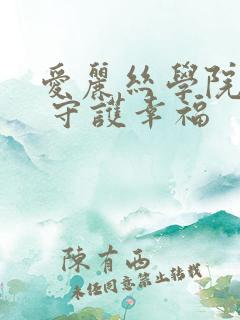 愛麗絲學院
守護幸福
陳有西
未經同意禁止轉載